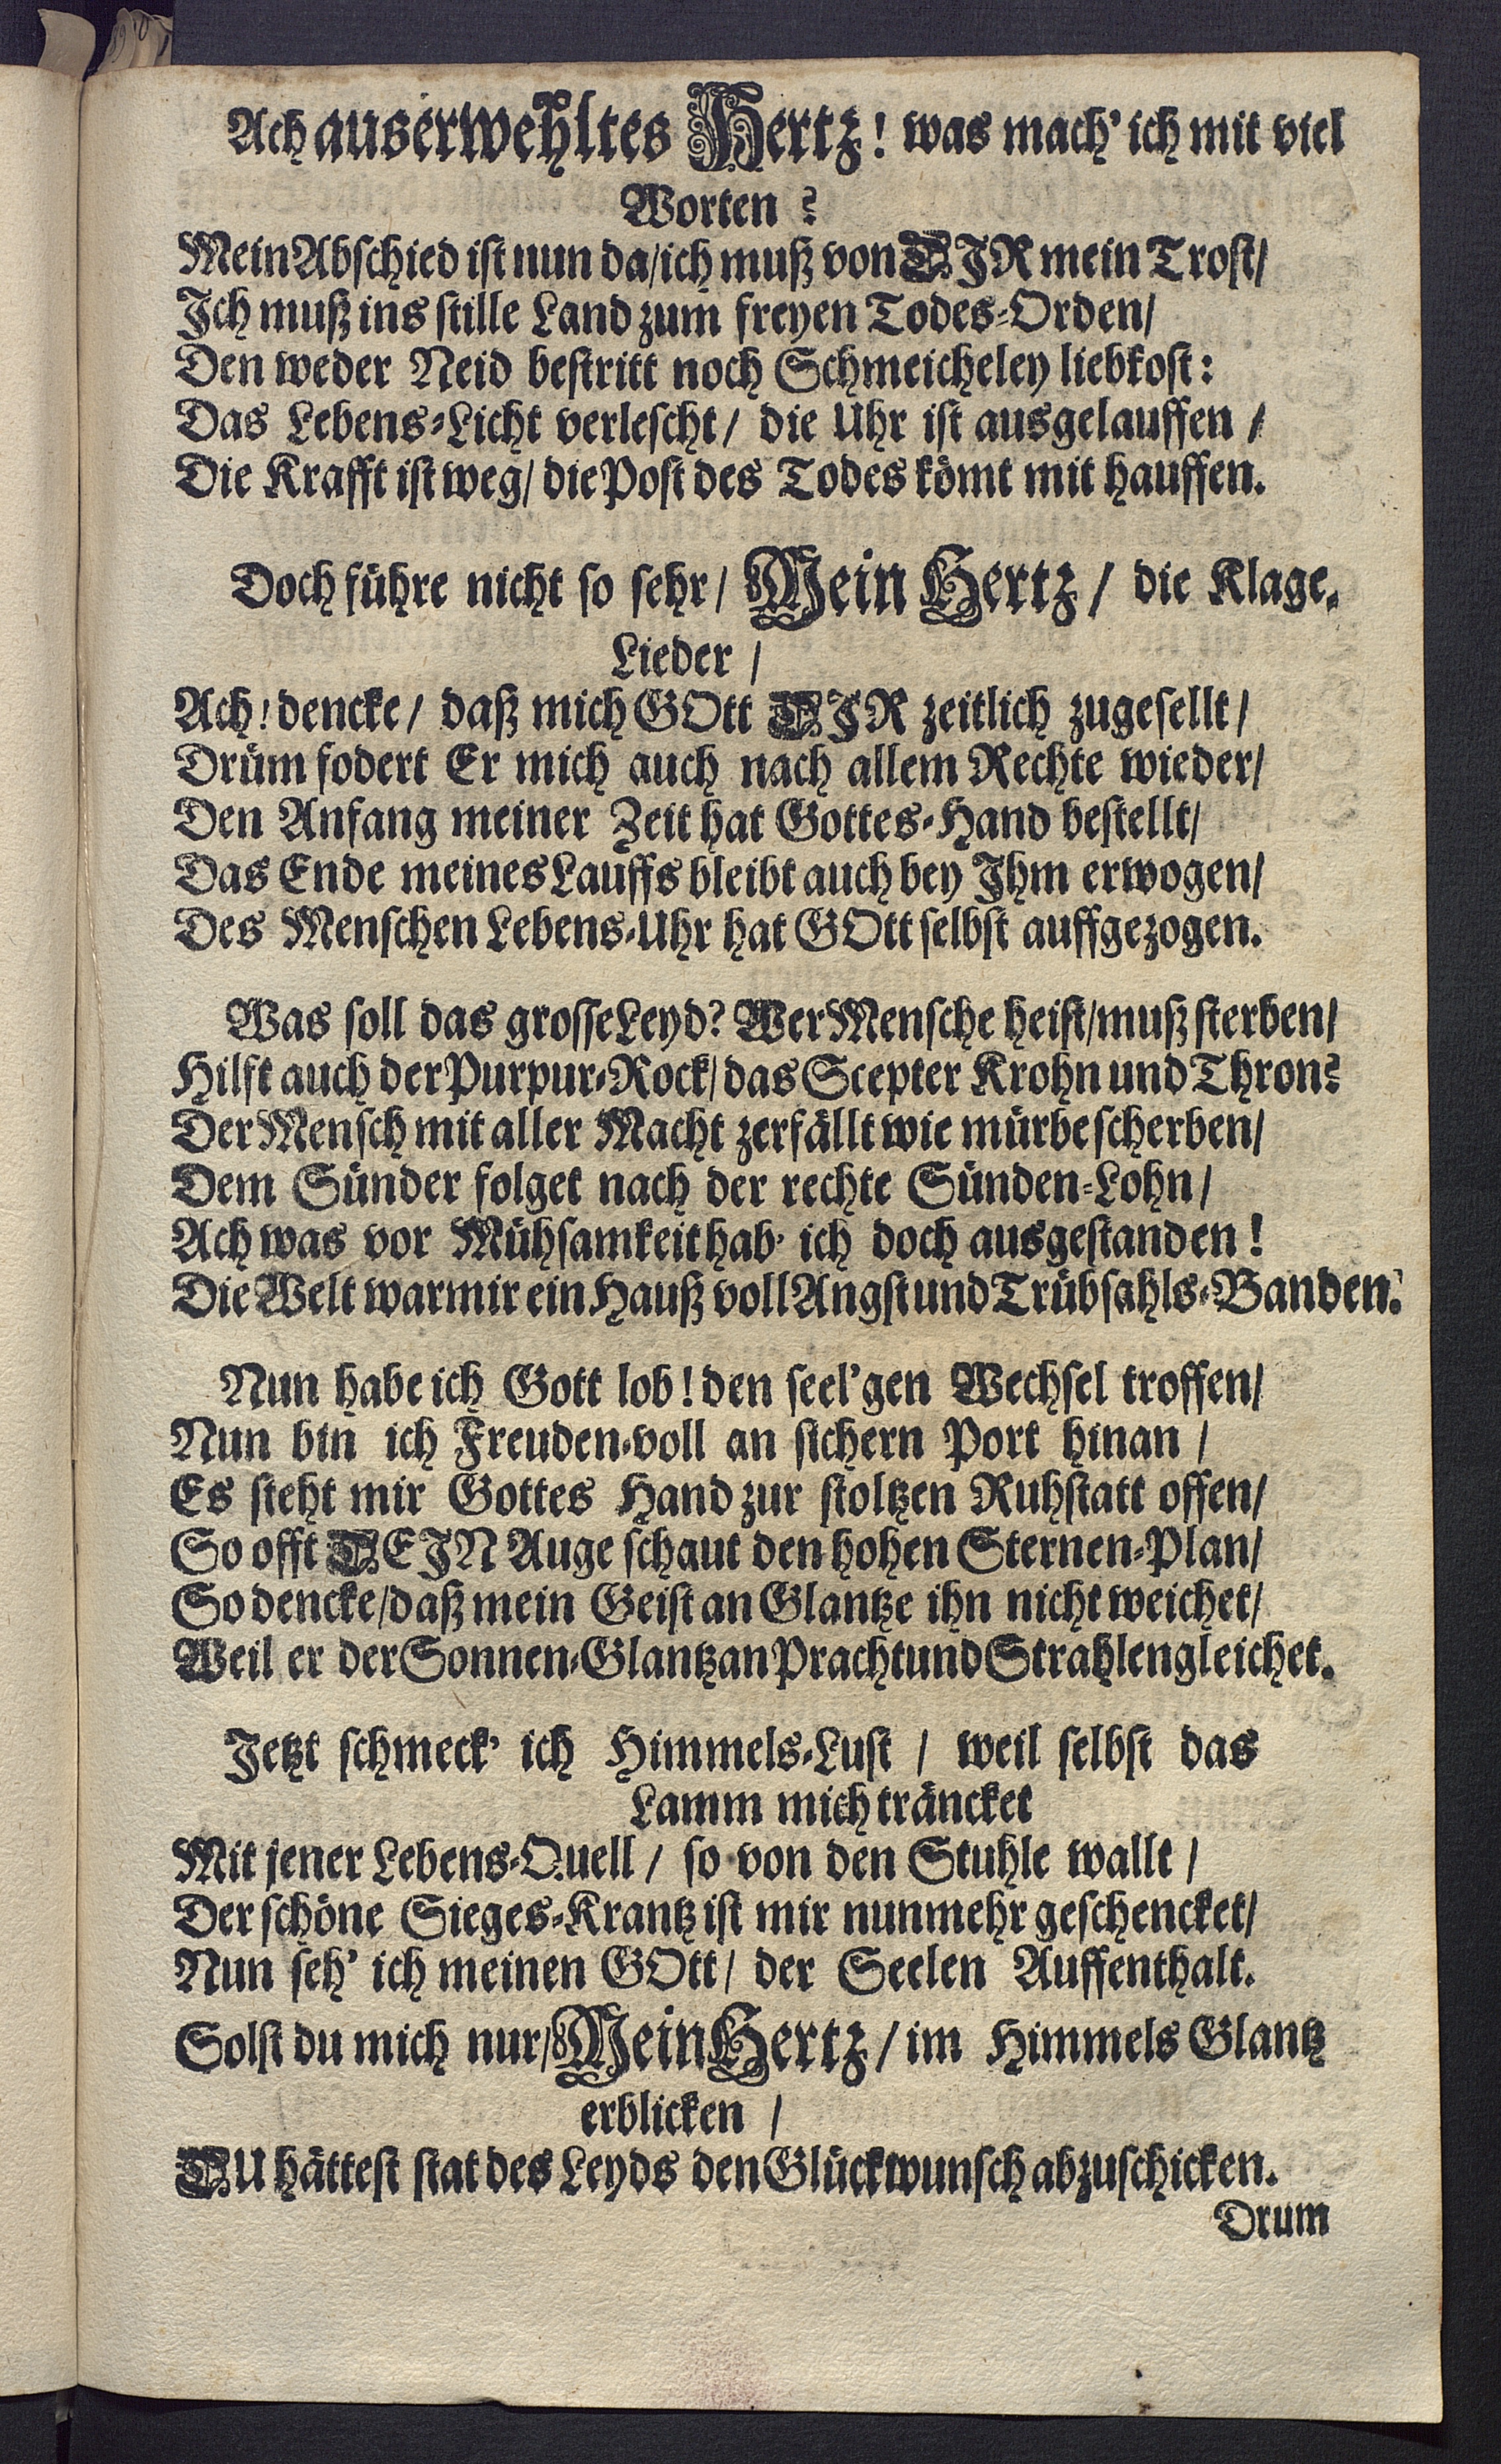 Ach auserwehltes Hertz! was mach' ich mit viel
Worten?
Mein Abschied ist nun da/ ich muß von DIR mein Trost/
Ich muß ins stille Land zum freyen Todes-Orden/
Den weder Neid bestritt noch Schmeicheley liebkost:
Das Lebens-Licht verlescht/ die Uhr ist ausgelauffen/
Die Krafft ist weg/ die Post des Todes kömt mit hauffen.
Doch führe nicht so sehr/ Mein Hertz/ die Klage-
Lieder/
Ach! dencke/ daß mich GOtt DIR zeitlich zugesellt/
Drüm fodert Er mich auch nach allem Rechte wieder/
Den Anfang meiner Zeit hat Gottes-Hand bestellt/
Das Ende meines Lauffs bleibt auch bey Ihm erwogen/
Des Menschen Lebens-Uhr hat GOtt selbst auffgezogen.
Was soll das grosse Leyd? Wer Mensche heist/ muß sterben/
Hilft auch der Purpur-Rock/ das Scepter Krohn und Thron?
Der Mensch mit aller Macht zerfällt wie mürbe scherben/
Dem Sünder folget nach der rechte Sünden-Lohn/
Ach was vor Mühsamkeit hab' ich doch ausgestanden!
Die Welt war mir ein Hauß voll Angst und Trübsahls-Banden.
Nun habe ich Gott lob! den seel'gen Wechsel troffen/
Nun bin ich Freuden-voll an sichern Port hinan/
Es steht mir Gottes Hand zur stoltzen Ruhstatt offen/
So offt DEIN Auge schaut den hohen Sternen-Plan/
So dencke/ daß mein Geist an Glantze ihn nicht weichet/
Weil er der Sonnen-Glantz an Pracht und Strahlen gleichet.
Jetzt schmeck' ich Himmels-Lust/ weil selbst das
Lamm mich träncket
Mit jener Lebens-Quell/ so von den Stuhle wallt/
Der schöne Sieges-Krantz ist mir nunmehr geschencket/
Nun seh' ich meinen GOtt/ der Seelen Auffenthalt.
Solst du mich nur/ Mein Hertz/ im Himmels Glantz
erblicken/
DU hättest stat des Leyds den Glückwunsch abzuschicken.
Drum